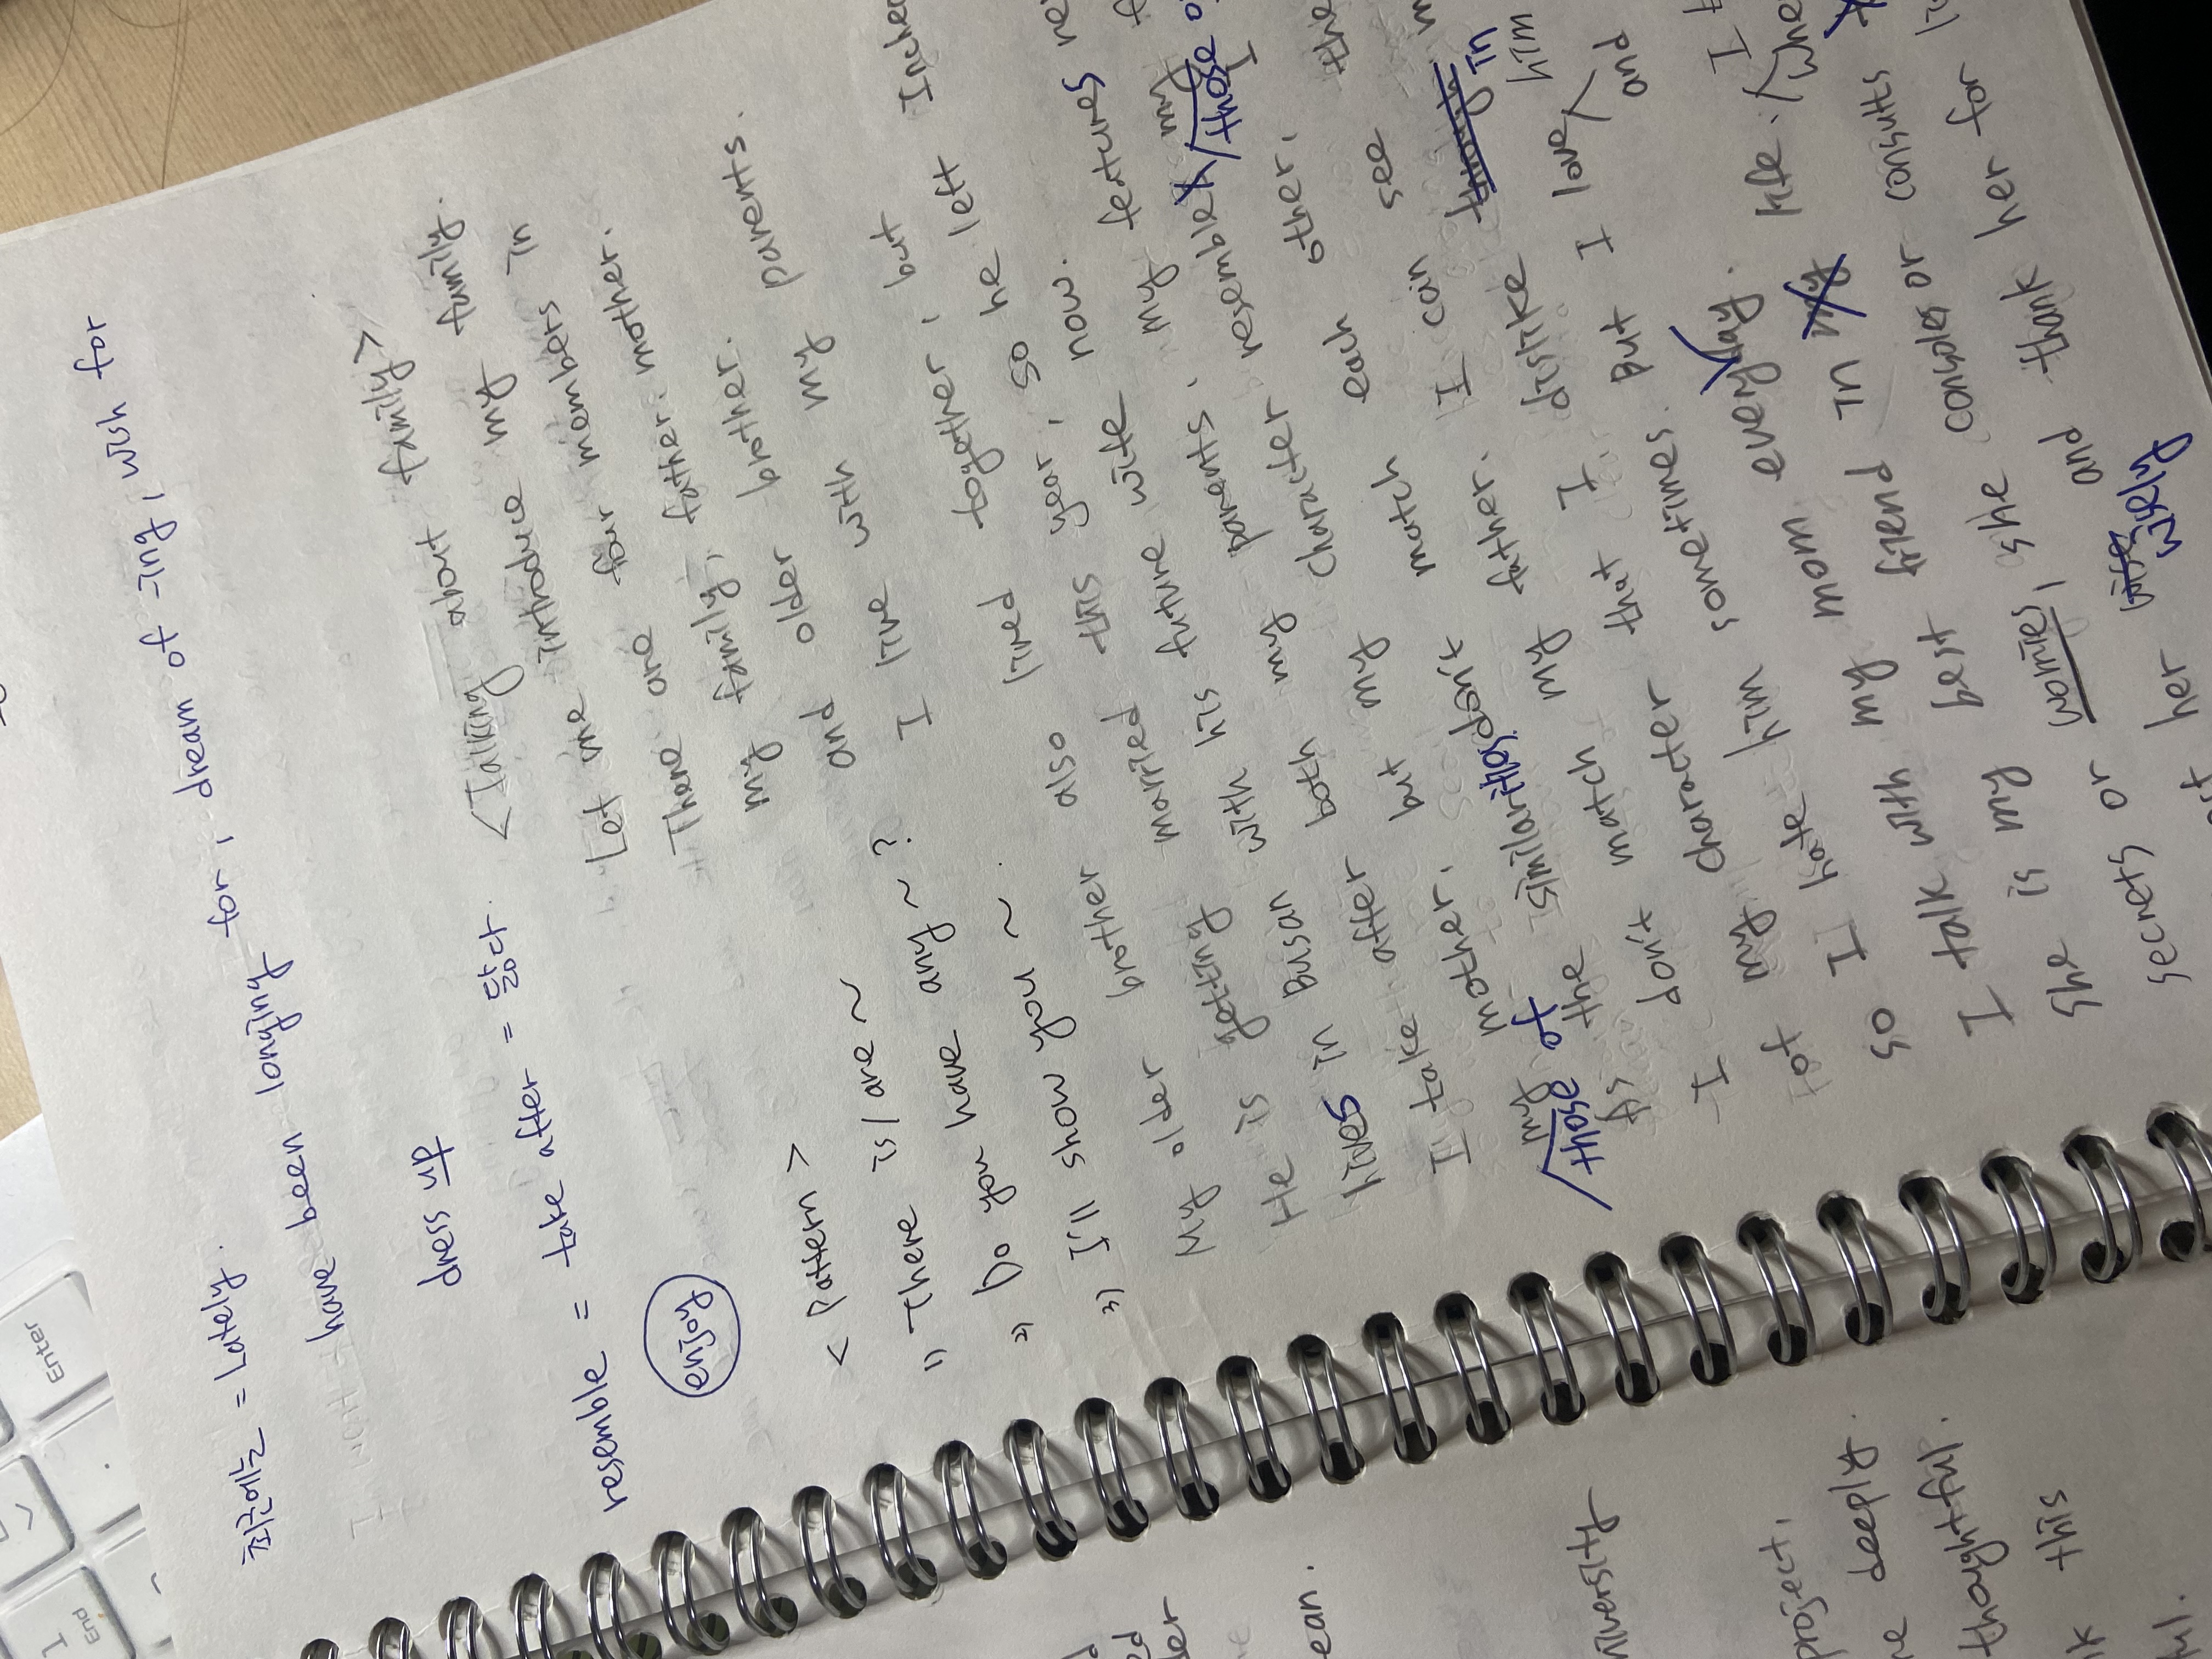 최근에는 = Lately.
have been longing for, dream of -ing, wish for
dress up
resemble = take after = 닮다.
enjoy
< pattern >
1) There is / are ~
2) Do you have any ~ ?
3) I'll show you ~ .
<Talking about family>
Let me introduce my family.
There are four members in
my family, father, mother.
and older brother.
I live with my parents.
My older brother also lived together, but
He is getting married this year, so he left Inche
lives in Busan with his future wife now.
I take after both my parents. my features re
my mother, but my character resembles my
/those of /those o
As the similarities don't match each other, I
I don't match my father. I can see the
lot my character that I dislike through in m
so I hate him sometimes. But I love him
I talk with my mom everyday. and
She is my best friend in my life. /whe I
secrets or worries, she consoles or consults
her wise wisely and thank her for
university
project.
deeply.
thoughtful.
this